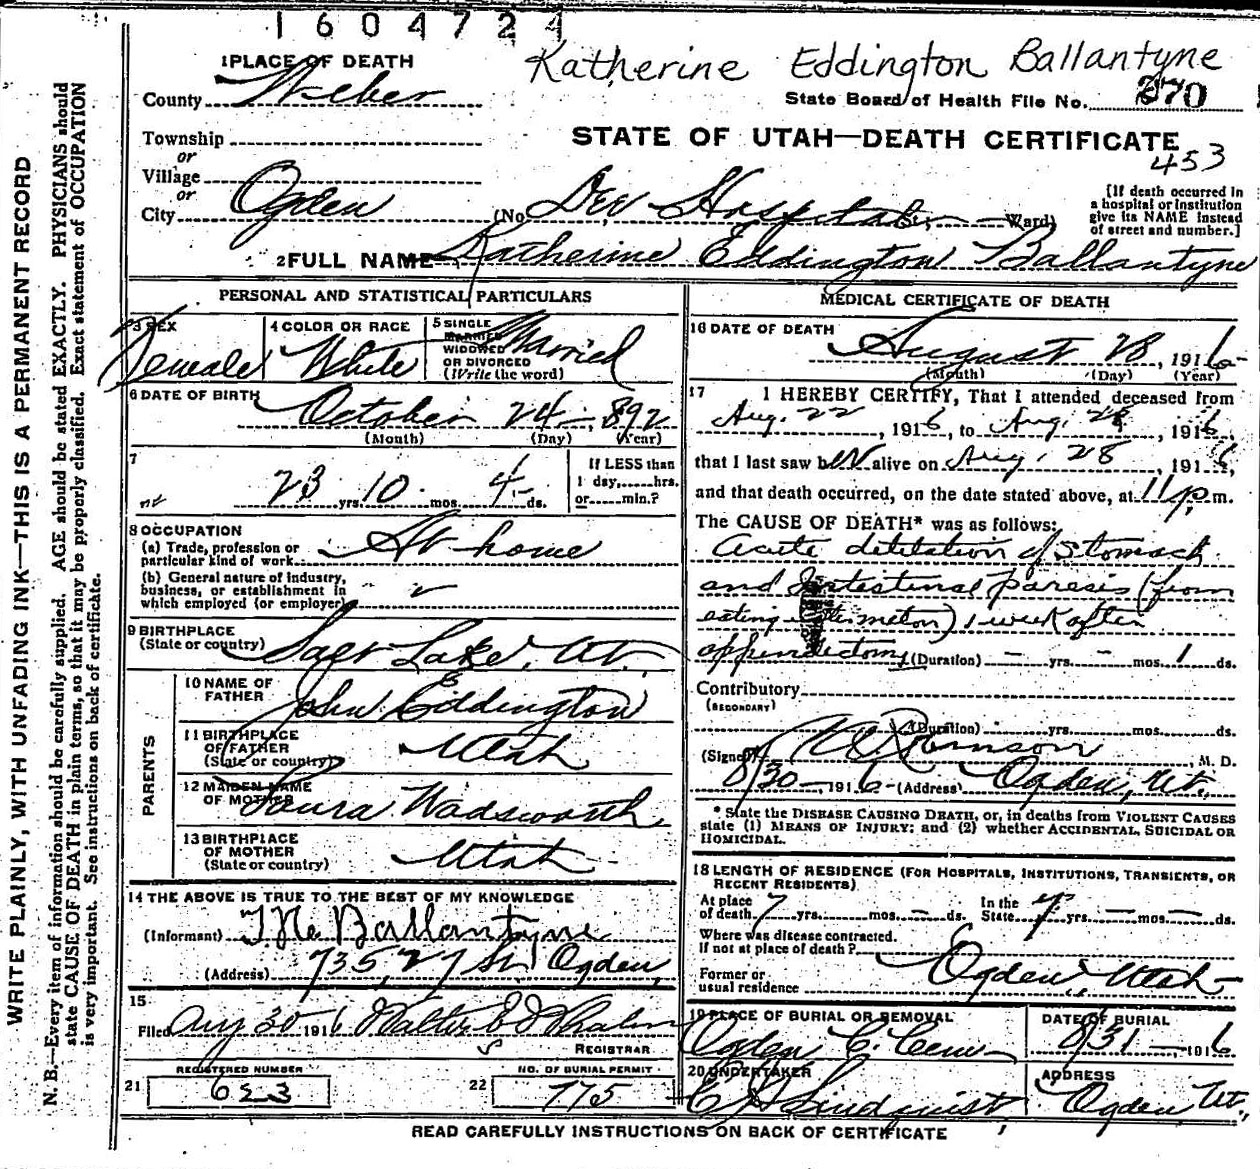 1604724
Katherine Eddington Ballantyne
1 PLACE OF DEATH
County Weber
State Board of Health File No. 270
Township
or
Village
or
City Ogden
STATE OF UTAH—DEATH CERTIFICATE
453
(No. Dee Hospital St.; Ward)
[If death occurred in
a hospital or institution
give its NAME instead
of street and number.]
2 FULL NAME Katherine Eddington Ballantyne
PERSONAL AND STATISTICAL PARTICULARS
3 SEX
Female
4 COLOR OR RACE
White
5 SINGLE
MARRIED
WIDOWED
OR DIVORCED
(Write the word)
Married
6 DATE OF BIRTH October 24, 1892
(Month) (Day) (Year)
7
23 yrs. 10 mos. 4 ds.
If LESS than
1 day,......hrs.
or......min.?
8 OCCUPATION
(a) Trade, profession or
particular kind of work At home
(b) General nature of industry,
business, or establishment in
which employed (or employer)
9 BIRTHPLACE
(State or country) Salt Lake, Ut.
PARENTS
10 NAME OF
FATHER John Eddington
11 BIRTHPLACE
OF FATHER
(State or country) Utah
12 MAIDEN NAME
OF MOTHER Laura Wadsworth
13 BIRTHPLACE
OF MOTHER
(State or country) Utah
14 THE ABOVE IS TRUE TO THE BEST OF MY KNOWLEDGE
(Informant) Ballantyne
(Address) 735, 27 St Ogden
15
Filed Aug 30 1916 Walter Whalen
REGISTRAR
REGISTERED NUMBER
21 623
NO. OF BURIAL PERMIT
22 775
MEDICAL CERTIFICATE OF DEATH
16 DATE OF DEATH
August 28, 1916
(Month) (Day) (Year)
17 I HEREBY CERTIFY, That I attended deceased from
Aug. 22, 1916, to Aug. 28, 1916,
that I last saw her alive on Aug. 28, 1916,
and that death occurred, on the date stated above, at 11 p. m.
The CAUSE OF DEATH* was as follows:
Acute dilitation of Stomach
and Intestinal paresis (from
eating) 1 week after
appendictomy (Duration) — yrs. — mos. 1 ds.
Contributory
(SECONDARY)
(Duration) yrs. mos. ds.
(Signed) , M. D.
8/30—, 1916 (Address) Ogden, Ut.
* State the DISEASE CAUSING DEATH, or, in deaths from VIOLENT CAUSES
state (1) MEANS OF INJURY; and (2) whether ACCIDENTAL, SUICIDAL OR
HOMICIDAL.
18 LENGTH OF RESIDENCE (FOR HOSPITALS, INSTITUTIONS, TRANSIENTS, OR
RECENT RESIDENTS)
At place
of death 7 yrs. mos. — ds.
In the
State yrs. — mos. — ds.
Where was disease contracted.
If not at place of death?
Former or
usual residence Ogden, Utah
19 PLACE OF BURIAL OR REMOVAL
Ogden C. Cem
DATE OF BURIAL
8/31—, 1916
20 UNDERTAKER
Lindquist
ADDRESS
Ogden Ut.
READ CAREFULLY INSTRUCTIONS ON BACK OF CERTIFICATE
WRITE PLAINLY, WITH UNFADING INK—THIS IS A PERMANENT RECORD
N. B.—Every item of information should be carefully supplied. AGE should be stated EXACTLY. PHYSICIANS should
state CAUSE OF DEATH in plain terms, so that it may be properly classified. Exact statement of OCCUPATION
is very important. See instructions on back of certificate.